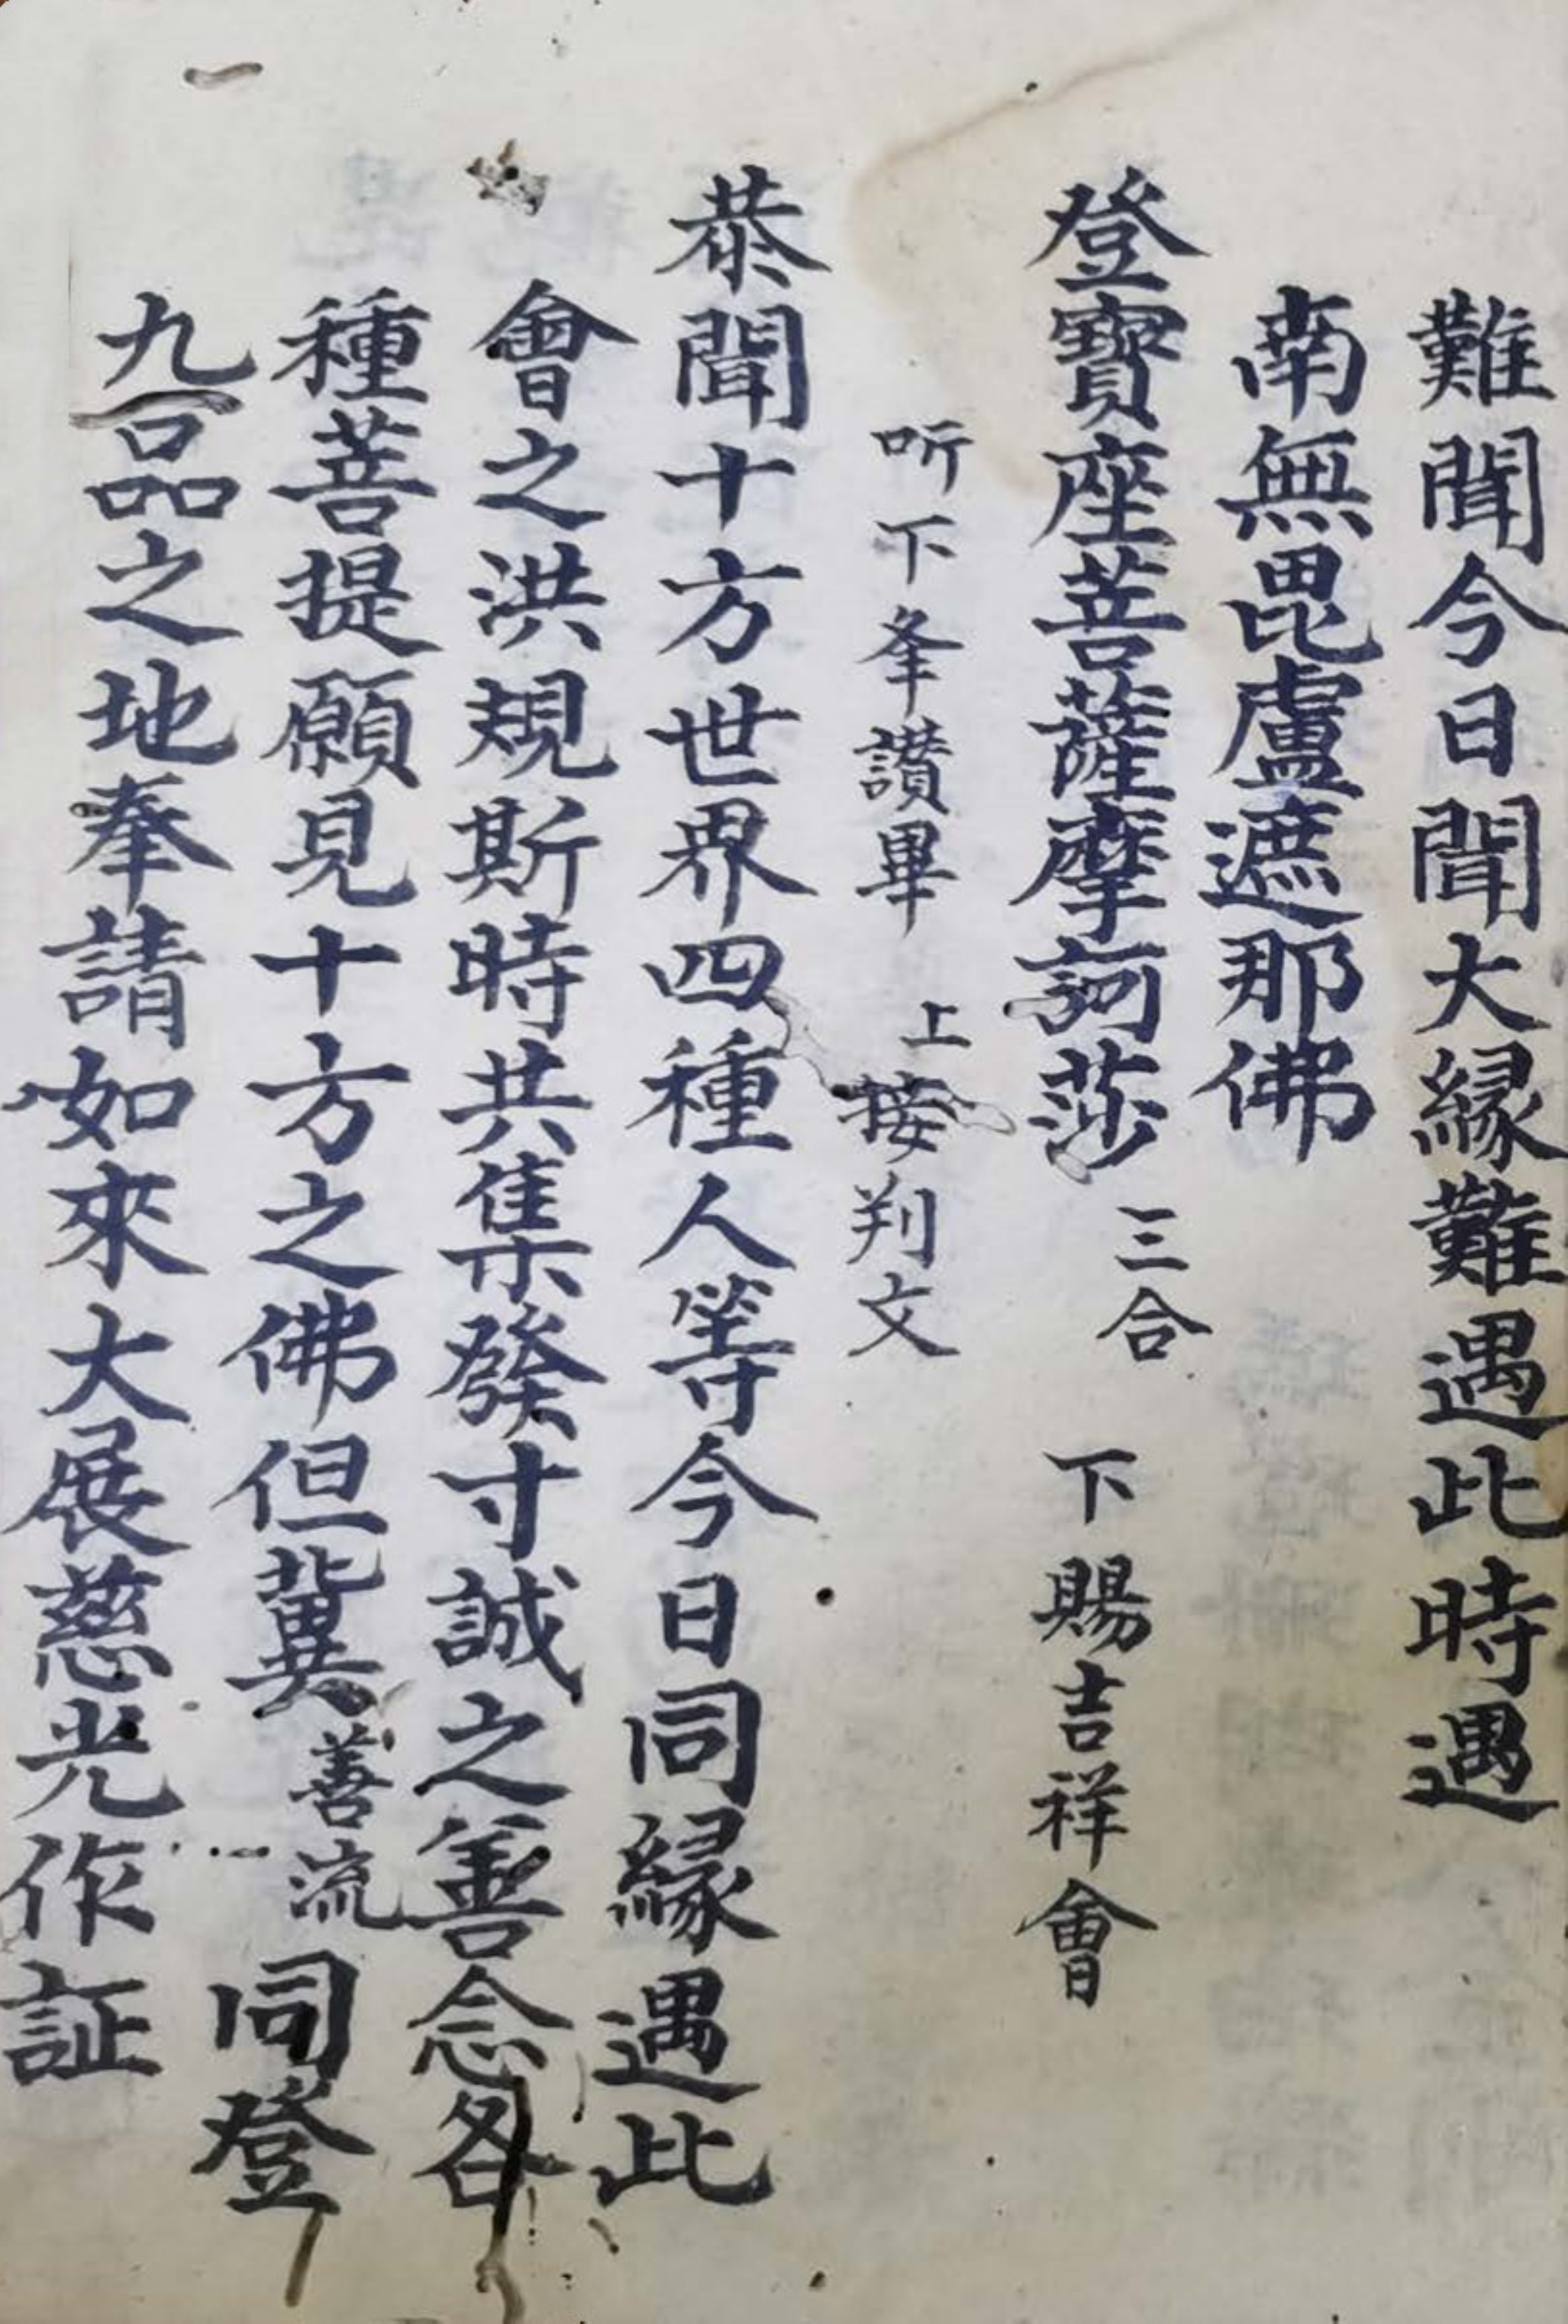 難聞今日聞大緣難遇此時遇
南無毘盧遮那佛
登寶座菩薩摩訶莎 三合 下賜吉祥會
听下夆讚畢 上接判文
恭聞十方世界四種人等今日同緣遇此
會之洪規斯時共集發寸誠之善念各
種菩提願見十方之佛但冀善流同登
九品之地奉請如來大展慈光作証